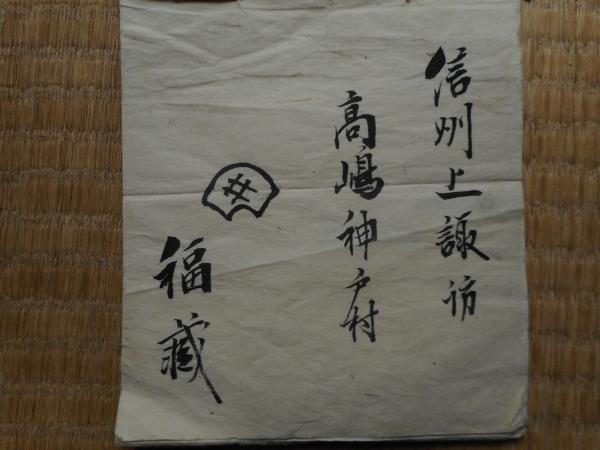 信州上諏訪
高嶋神戸村
井
福藏